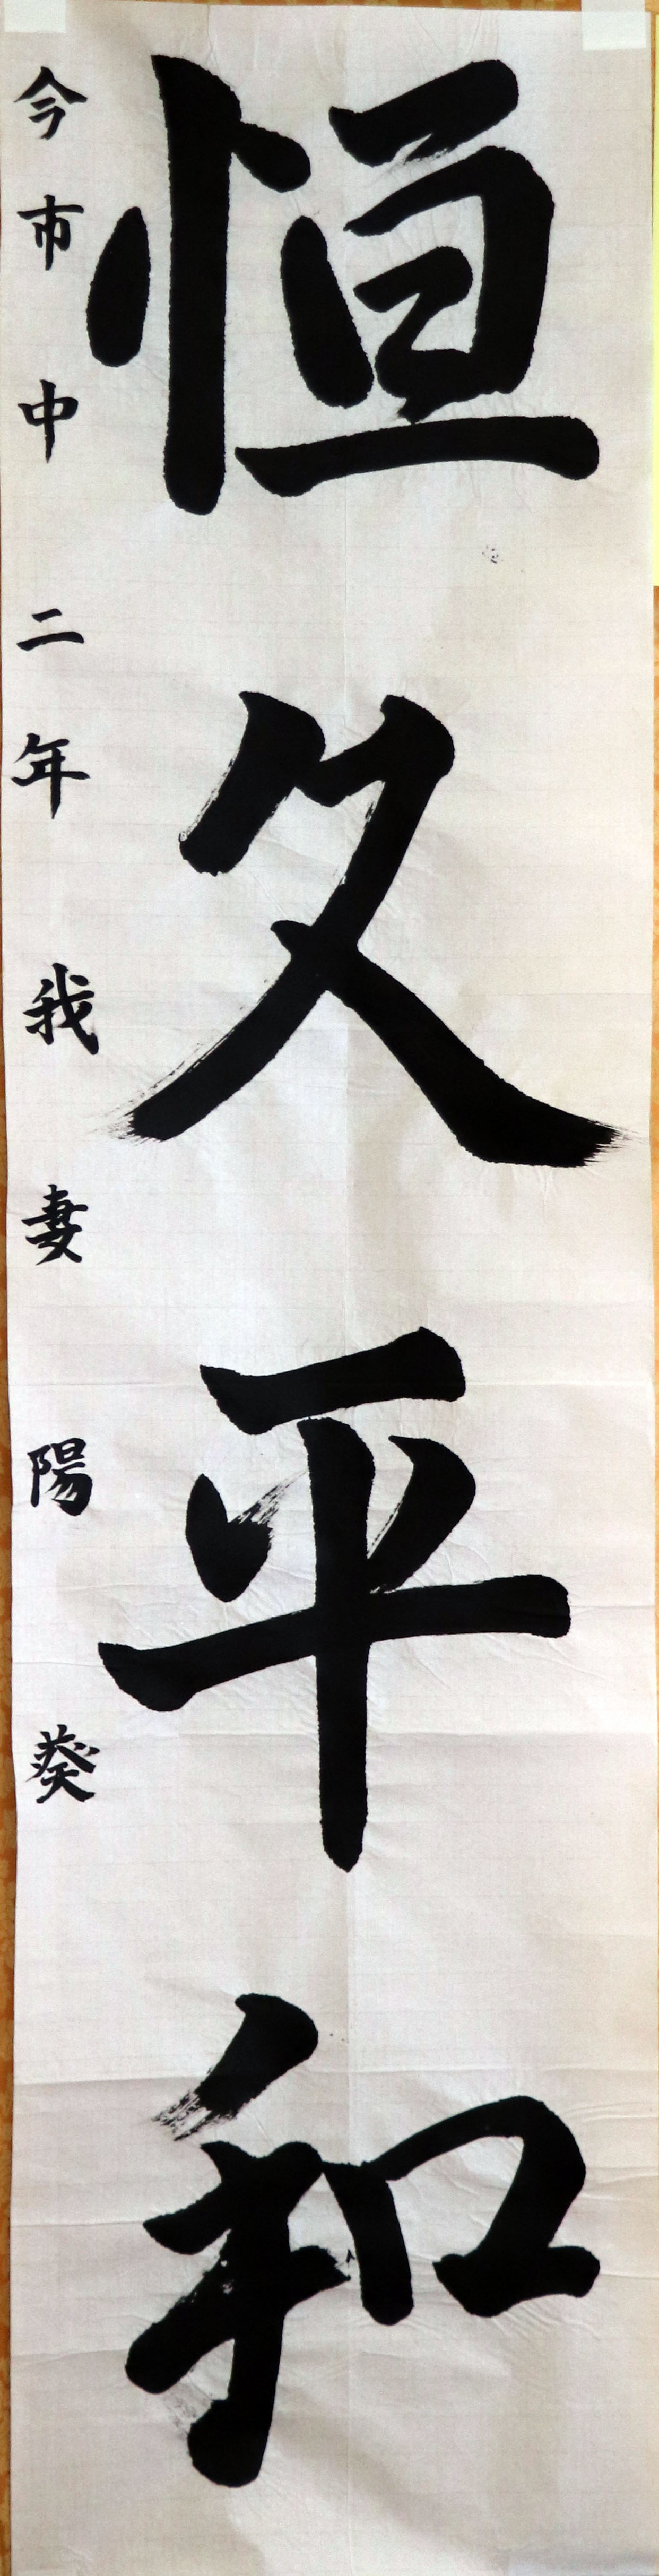 恒久平和
今市中 二年 我妻陽葵